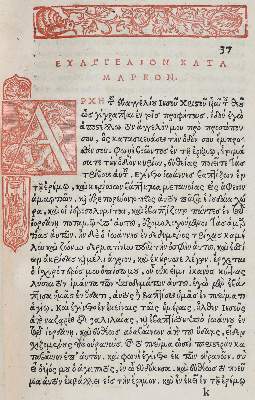 37
ΕΥΑΓΓΕΛΙΟΝ ΚΑΤΑ
ΜΑΡΚΟΝ.
ΑΡΧΗ τοῦ εὐαγγελίου Ἰησοῦ Χριστοῦ υἱοῦ τοῦ θεοῦ
ὡς γέγραπται ἐν τοῖς προφήταις, ἰδοὺ ἐγὼ
ἀποστέλλω τὸν ἄγγελόν μου πρὸ προσώπου
σου, ὃς κατασκευάσει τὴν ὁδόν σου ἔμπροσ
θέν σου. φωνὴ βοῶντος ἐν τῇ ἐρήμῳ, ἑτοιμά
σατε τὴν ὁδὸν κυρίου, εὐθείας ποιεῖτε τὰς
τρίβους αὐτοῦ. Ἐγένετο ἰωάννης βαπτίζων ἐν
τῇ ἐρήμῳ, καὶ κηρύσσων βάπτισμα μετανοίας εἰς ἄφεσιν
ἁμαρτιῶν, καὶ ἐξεπορεύετο πρὸς αὐτὸν πᾶσα ἡ ἰουδαία χώ
ρα, καὶ οἱ ἱεροσολυμῖται, καὶ ἐβαπτίζοντο πάντες ἐν τῷ
ἰορδάνῃ ποταμῷ ὑπ' αὐτοῦ, ἐξομολογούμενοι τὰς ἁμαρ
τίας αὐτῶν. ἦν δὲ ὁ ἰωάννης ἐνδεδυμένος τρίχας καμή
λου καὶ ζώνην δερματίνην περὶ τὴν ὀσφὺν αὐτοῦ, καὶ ἐσθί
ων ἀκρίδας καὶ μέλι ἄγριον, καὶ ἐκήρυσσε λέγων, ἔρχεται
ὁ ἰσχυρότερός μου ὀπίσω μου, οὗ οὐκ εἰμὶ ἱκανὸς κύψας
λῦσαι τὸν ἱμάντα τῶν ὑποδημάτων αὐτοῦ. ἐγὼ μὲν ἐβά
πτισα ὑμᾶς ἐν ὕδατι, αὐτὸς δὲ βαπτίσει ὑμᾶς ἐν πνεύματι
ἁγίῳ. Καὶ ἐγένετο ἐν ἐκείναις ταῖς ἡμέραις, ἦλθεν Ἰησοῦς
ἀπὸ ναζαρὲτ τῆς γαλιλαίας, καὶ ἐβαπτίσθη ὑπὸ ἰωάννου εἰς
τὸν ἰορδάνην, καὶ εὐθέως ἀναβαίνων ἀπὸ τοῦ ὕδατος, εἶδε
σχιζομένους τοὺς οὐρανούς, καὶ τὸ πνεῦμα ὡσεὶ περιστερὰν κα
ταβαῖνον ἐπ' αὐτόν. καὶ φωνὴ ἐγένετο ἐκ τῶν οὐρανῶν, σὺ
εἶ ὁ υἱός μου ὁ ἀγαπητός, ἐν ᾧ εὐδόκησα. καὶ εὐθέως τὸ πνεῦ
μα αὐτὸν ἐκβάλλει εἰς τὴν ἔρημον. καὶ ἦν ἐκεῖ ἐν τῇ ἐρήμῳ
k